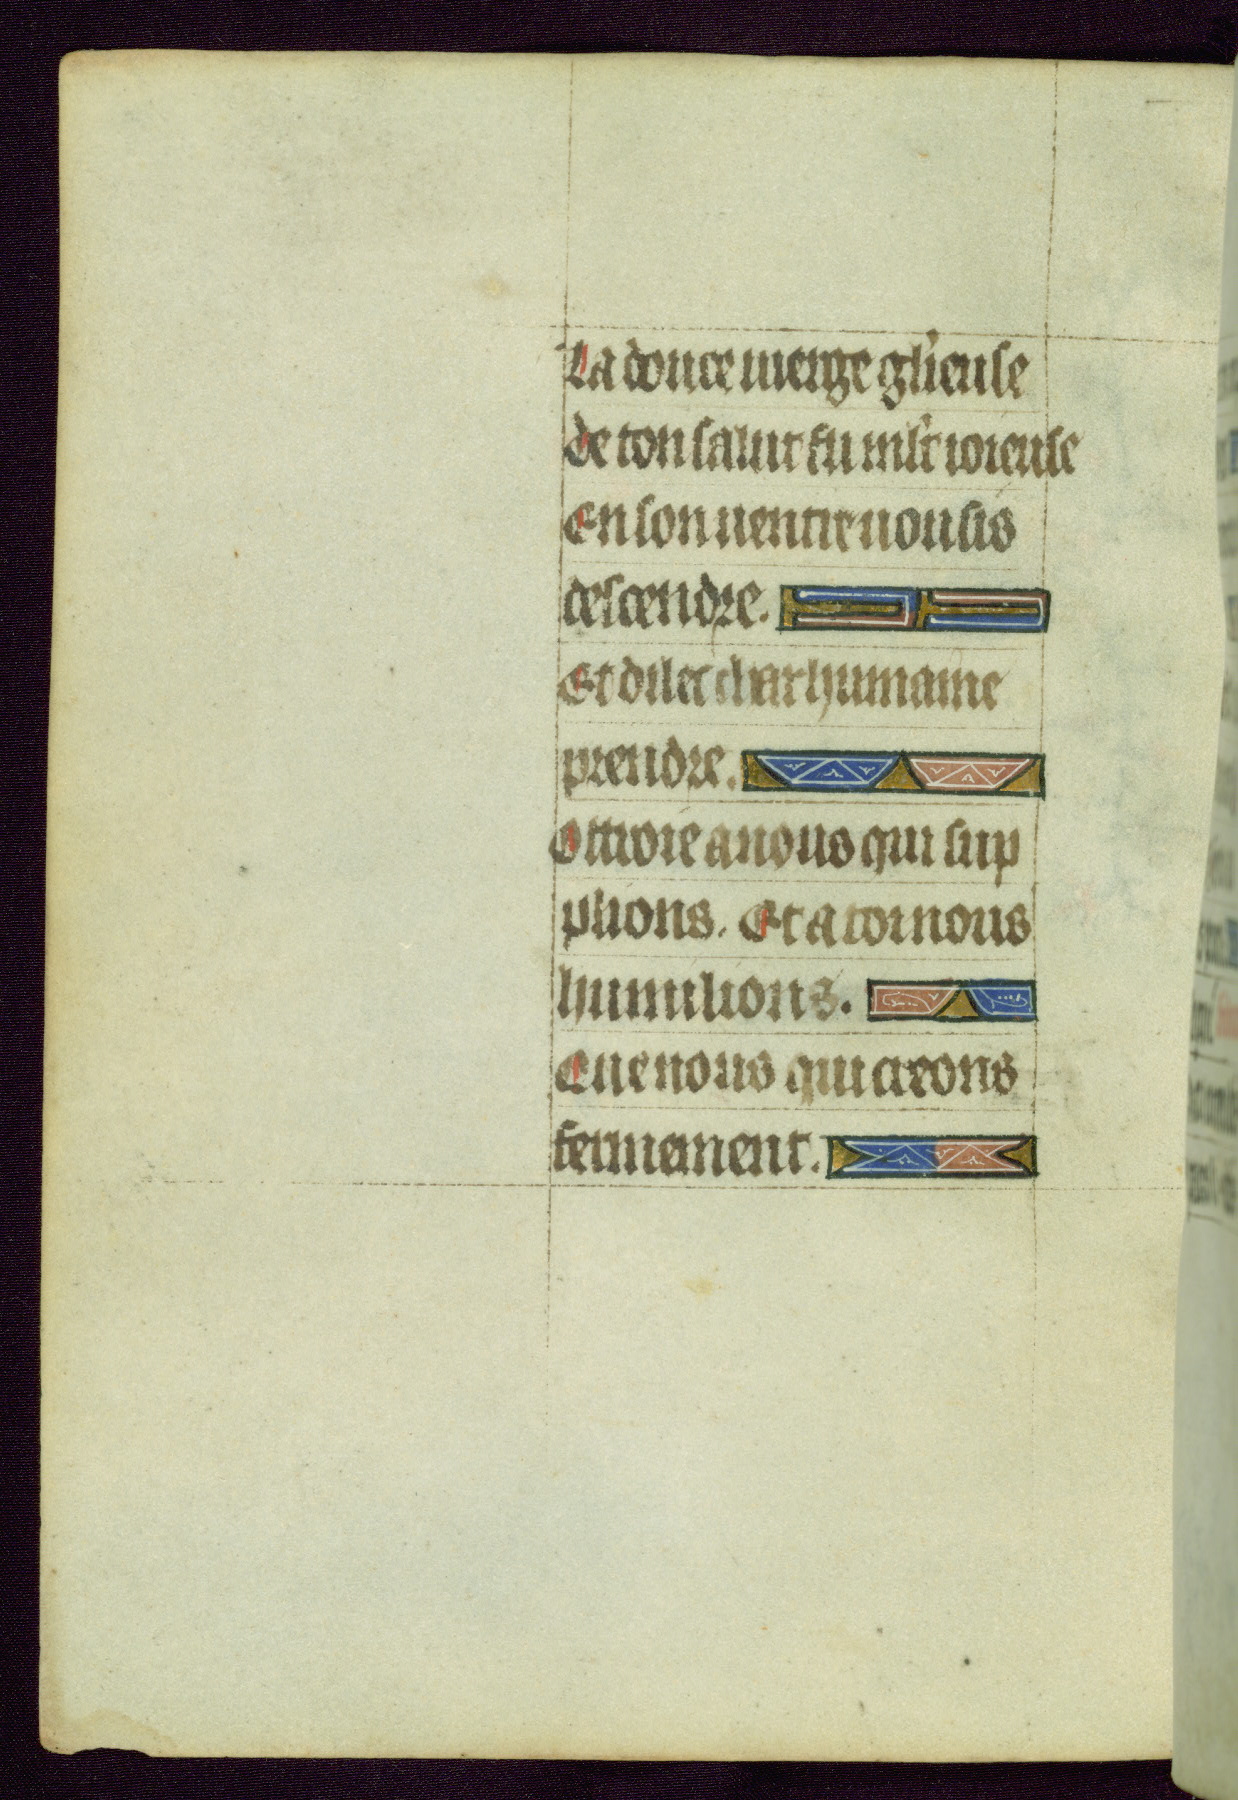 La douce uierge gl'ieuse
de ton salut fu mlt ioieuse
En son uentre uousis
descendre.
Et dilec char humaine
prendre.
Ottroie a nous qui sup
plions. Et a toi nous
humilions.
Que nous qui creons
fermement.